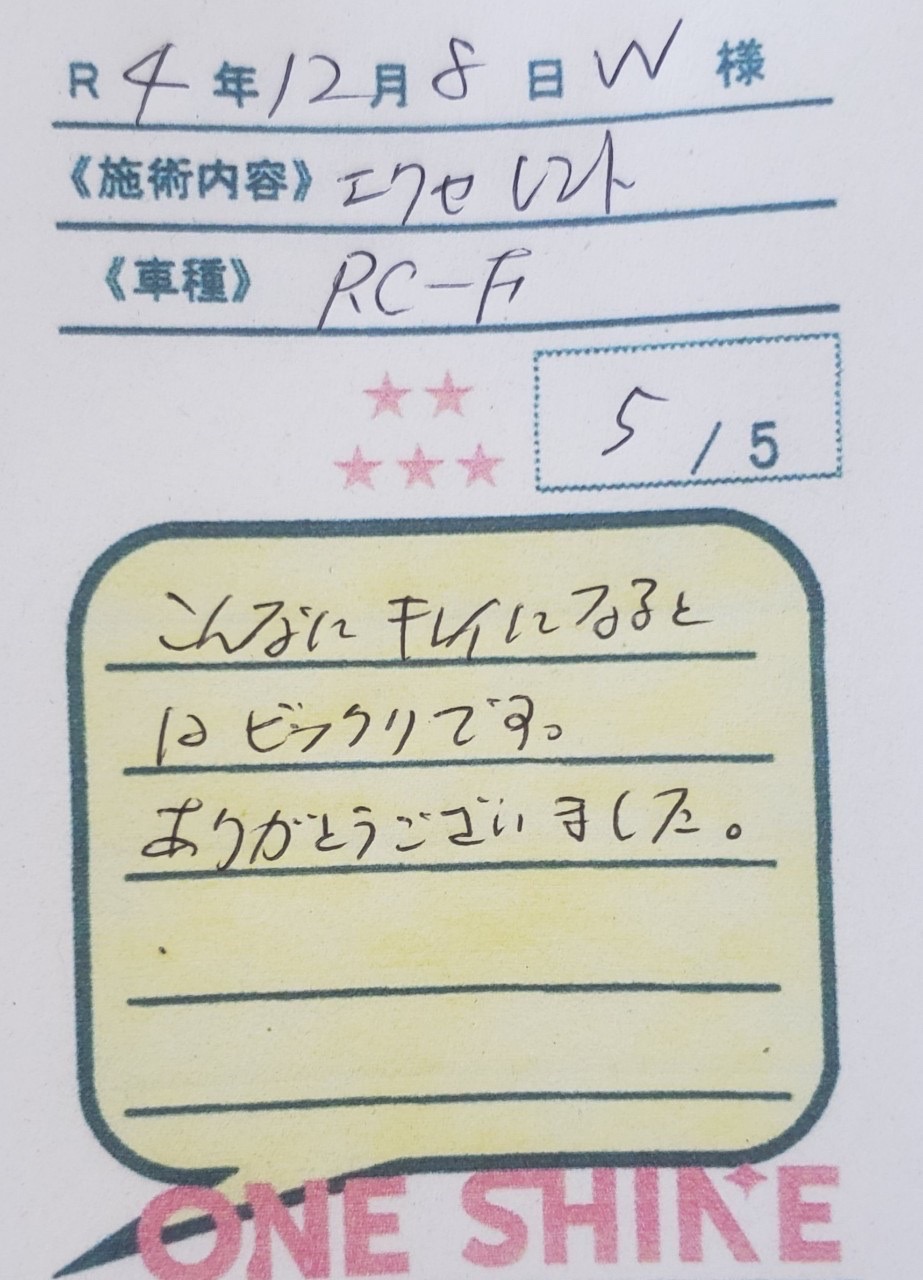 R 4年12月8日 W 様
《施術内容》エクセレント
《車種》RC-F
5 / 5
こんなに キレイになると
は ビックリです。
ありがとうございました。
ONE SHINE